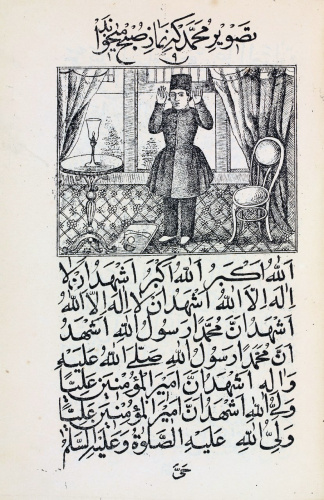 تصویر محمد که نماز صبح میخواند
۹
اَللهُ اَکبَرُ اَللهُ اَکبَرُ اَشهَدُ اَن لا
اِلهَ اِلاَّ اللهُ اَشهَدُ اَن لا اِلهَ اِلاَّ اللهُ
اَشهَدُ اَنَّ مُحَمَّدًا رَسُولُ اللهِ اَشهَدُ
اَنَّ مُحَمَّدًا رَسُولُ اللهِ صَلَّی اللهُ عَلَیهِ
وَالِهِ اَشهَدُ اَنَّ اَمِیرَ المُؤمِنینَ عَلِیًّا
وَلِیُّ اللهِ اَشهَدُ اَنَّ اَمیرَ المُؤمِنینَ عَلِیًّا
وَلِیُّ اللهِ عَلَیهِ الصَّلوةُ وَعَلَیهِ السَّلامُ
حَیَّ